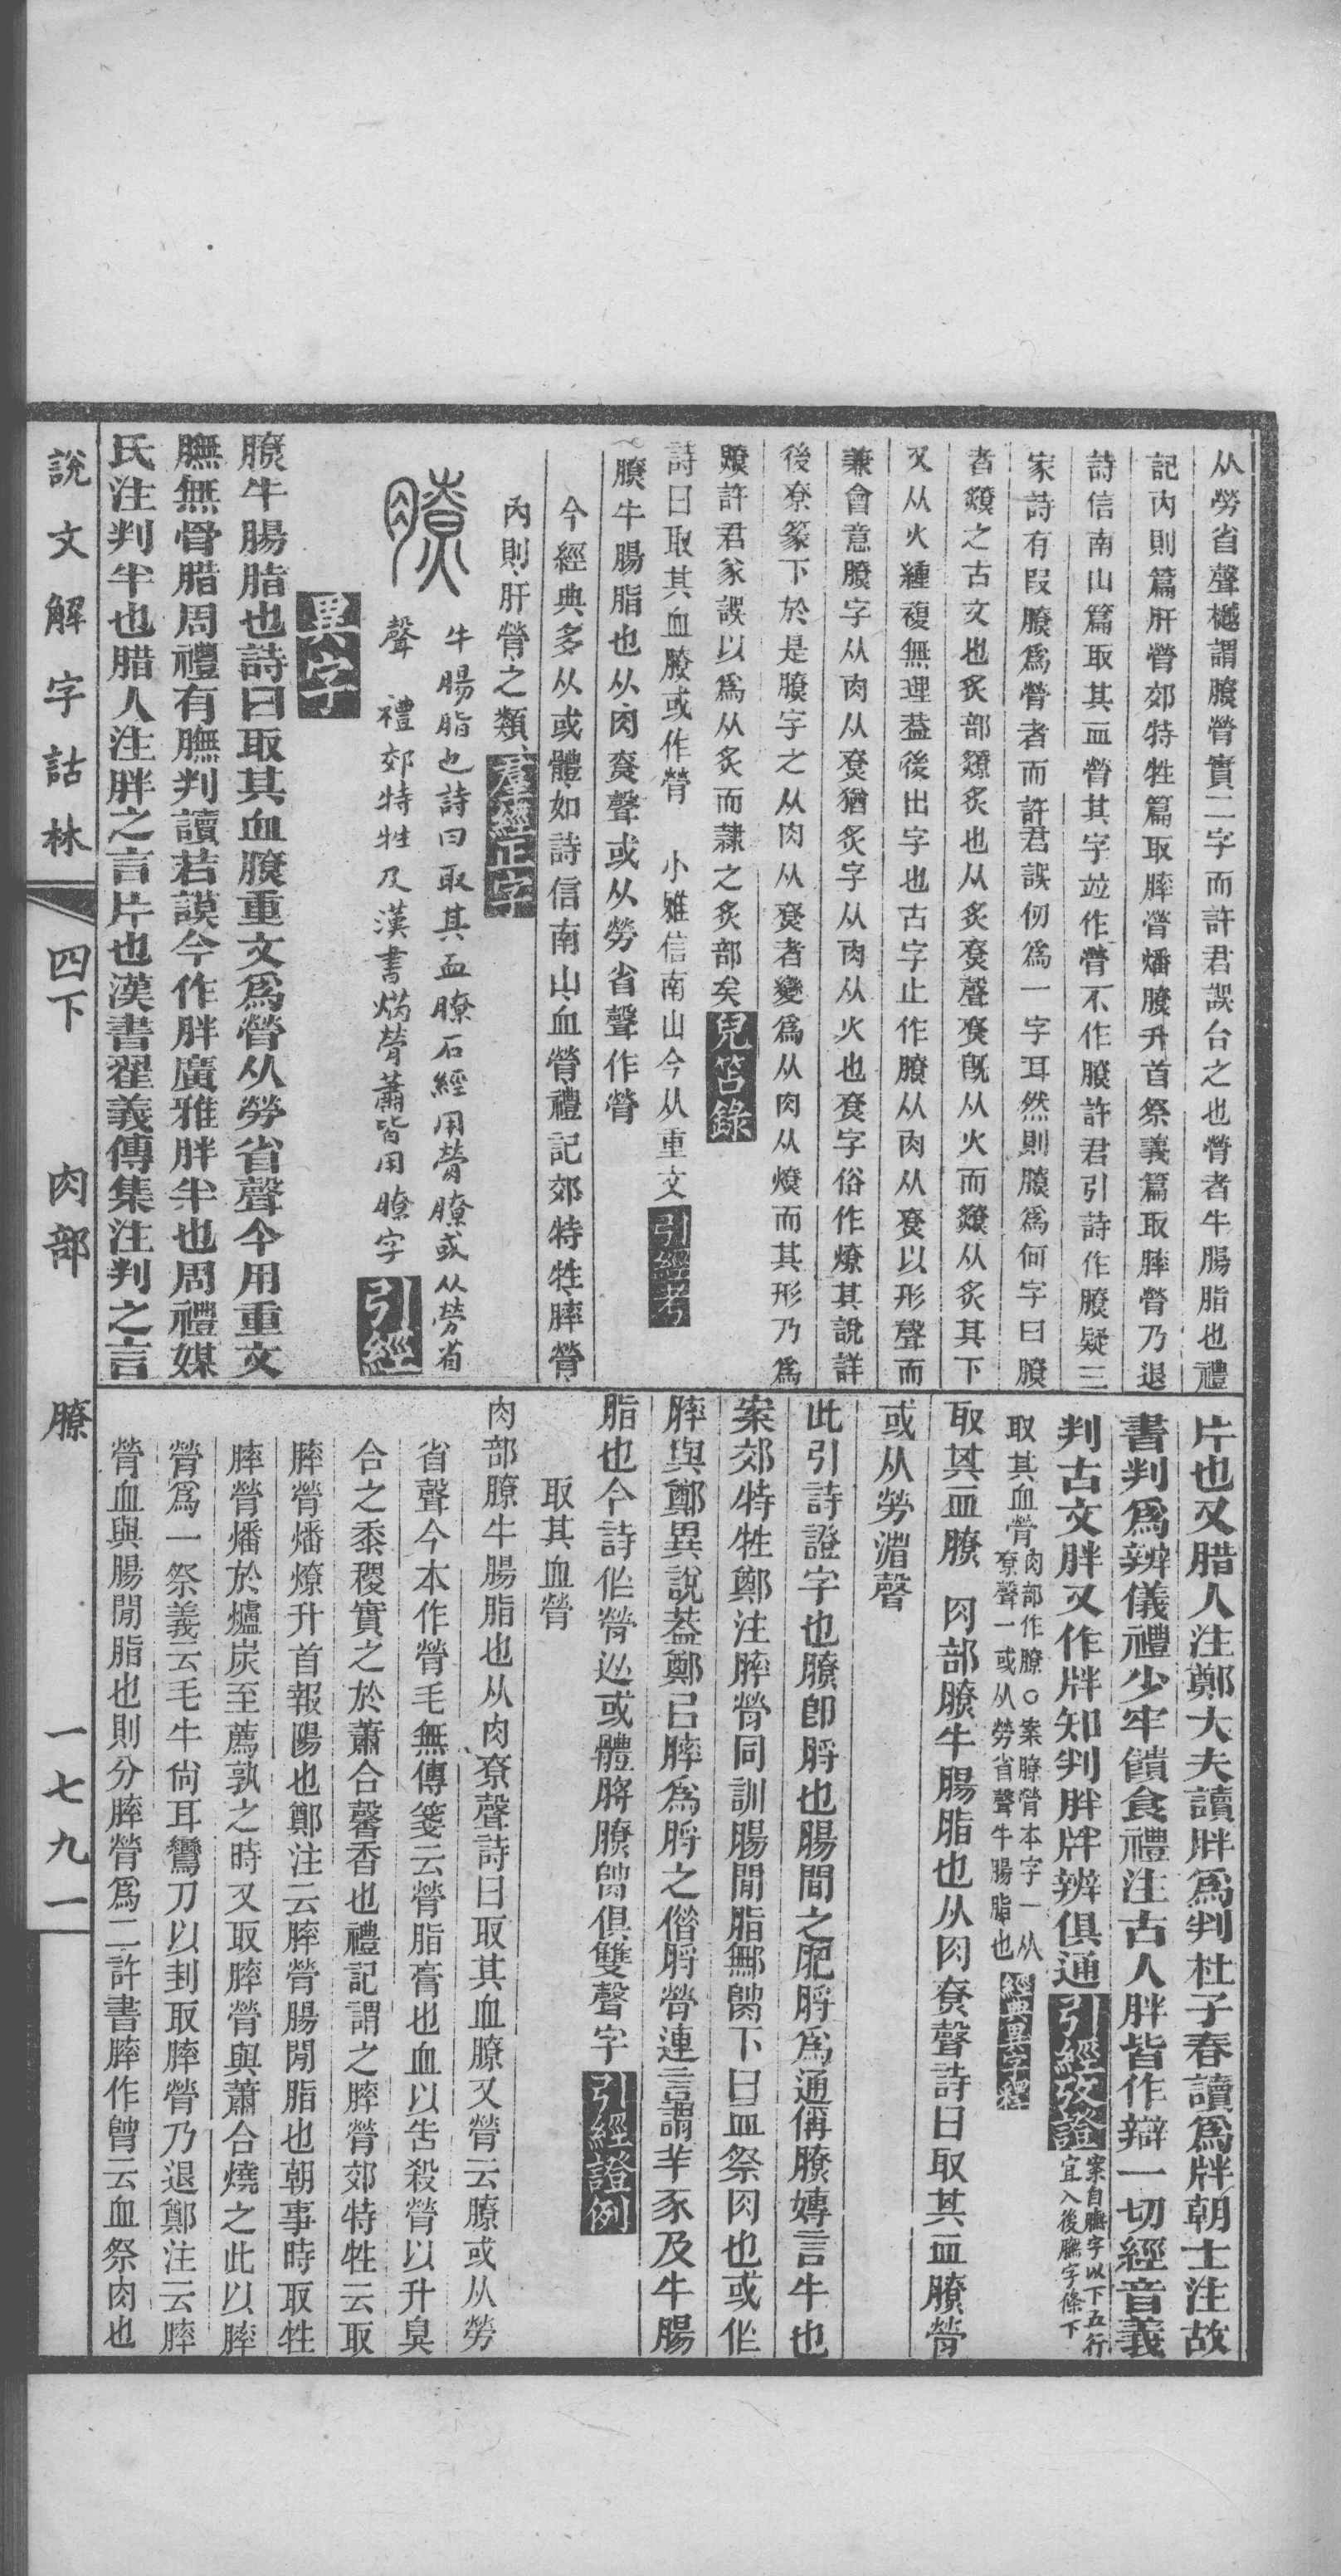 从勞省聲樾謂膫膋實二字而許君誤合之也膋者牛腸脂也禮
記內則篇肝膋郊特牲篇取膟膋燔膫升首祭義篇取膟膋乃退
詩信南山篇取其血膋其字竝作膋不作膫許君引詩作膫疑三
家詩有叚膫爲膋者而許君誤仞爲一字耳然則膫爲何字曰膫
者爒之古文也炙部爒炙也从炙尞聲尞旣从火而爒从炙其下
又从火緟複無理葢後出字也古字止作膫从肉从尞以形聲而
兼會意膫字从肉从尞猶炙字从肉从火也尞字俗作燎其說詳
後尞篆下於是膫字之从肉从尞者變爲从肉从燎而其形乃爲
爒許君㒸誤以爲从炙而隸之炙部矣兒笘錄
詩曰取其血膫或作膋　小雅信南山今从重文引經考
膫牛腸脂也从肉尞聲或从勞省聲作膋
今經典多从或體如詩信南山血膋禮記郊特牲膟膋
內則肝膋之類羣經正字
膫　牛腸脂也詩曰取其血膫石經用膋膫或从勞省
聲　禮郊特牲及漢書焫膋蕭皆用膫字引經
異字
膫牛腸脂也詩曰取其血膫重文爲膋从勞省聲今用重文
膴無骨腊周禮有膴判讀若謨今作胖廣雅胖半也周禮媒
氏注判半也腊人注胖之言片也漢書翟義傳集注判之言
片也又腊人注鄭大夫讀胖爲判杜子春讀爲牉朝士注故
書判爲辨儀禮少牢饋食禮注古人胖皆作辯一切經音義
判古文胖又作牉知判胖牉辨俱通引經攷證案自膴字以下五行宜入後膴字條下
取其血膋肉部作膫○案膫膋本字一从尞聲一或从勞省聲牛腸脂也經典異字釋
取其血膫　肉部膫牛腸脂也从肉尞聲詩曰取其血膫膋
或从勞渻聲
此引詩證字也膫卽脟也腸間之肥脟爲通偁膫嫥言牛也
案郊特牲鄭注膟膋同訓腸閒脂 下曰血祭肉也或作
膟與鄭異說葢鄭㠯膟爲脟之偕脟膋連言謂羊豕及牛腸
脂也今詩作膋從或體脟膫 俱雙聲字引經證例
取其血膋
肉部膫牛腸脂也从肉尞聲詩曰取其血膫又膋云膫或从勞
省聲今本作膋毛無傳箋云膋脂膏也血以告殺膋以升臭
合之黍稷實之於蕭合馨香也禮記謂之膟膋郊特牲云取
膟膋燔燎升首報陽也鄭注云膟膋腸閒脂也朝事時取牲
膟膋燔於爐炭至薦孰之時又取膟膋與蕭合燒之此以膟
膋爲一祭義云毛牛尙耳鸞刀以刲取膟膋乃退鄭注云膟
膋血與腸閒脂也則分膟膋爲二許書膟作 云血祭肉也
說文解字詁林　四下　肉部　膫　一七九一